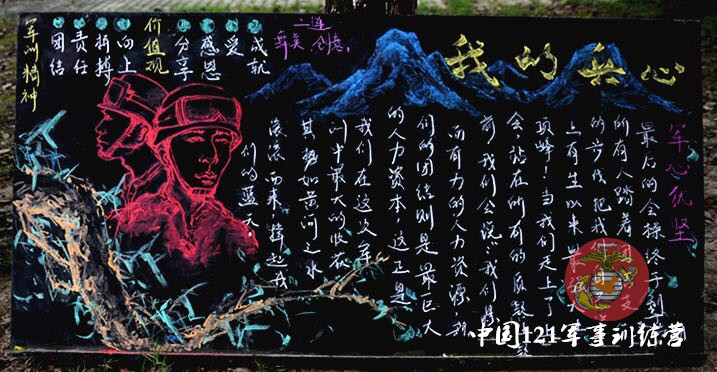 我的兵心
军心
最后的会操终于到了
所有人踏着
的步伐,把我
上有生以来
顶峰!当我们走上了
会站在所有的
前,我们会说:“我们
而有力的人力资源,
们的团结则是最巨大
的人力资本,这正是
我们在这次军
训中最大的收获
其势如黄河之水
滚滚而来,撑起我
们的蓝天。
二连
创意
成就
爱
感恩
分享
价值观
向上
拼搏
责任
团结
军训精神
中国121军事训练营